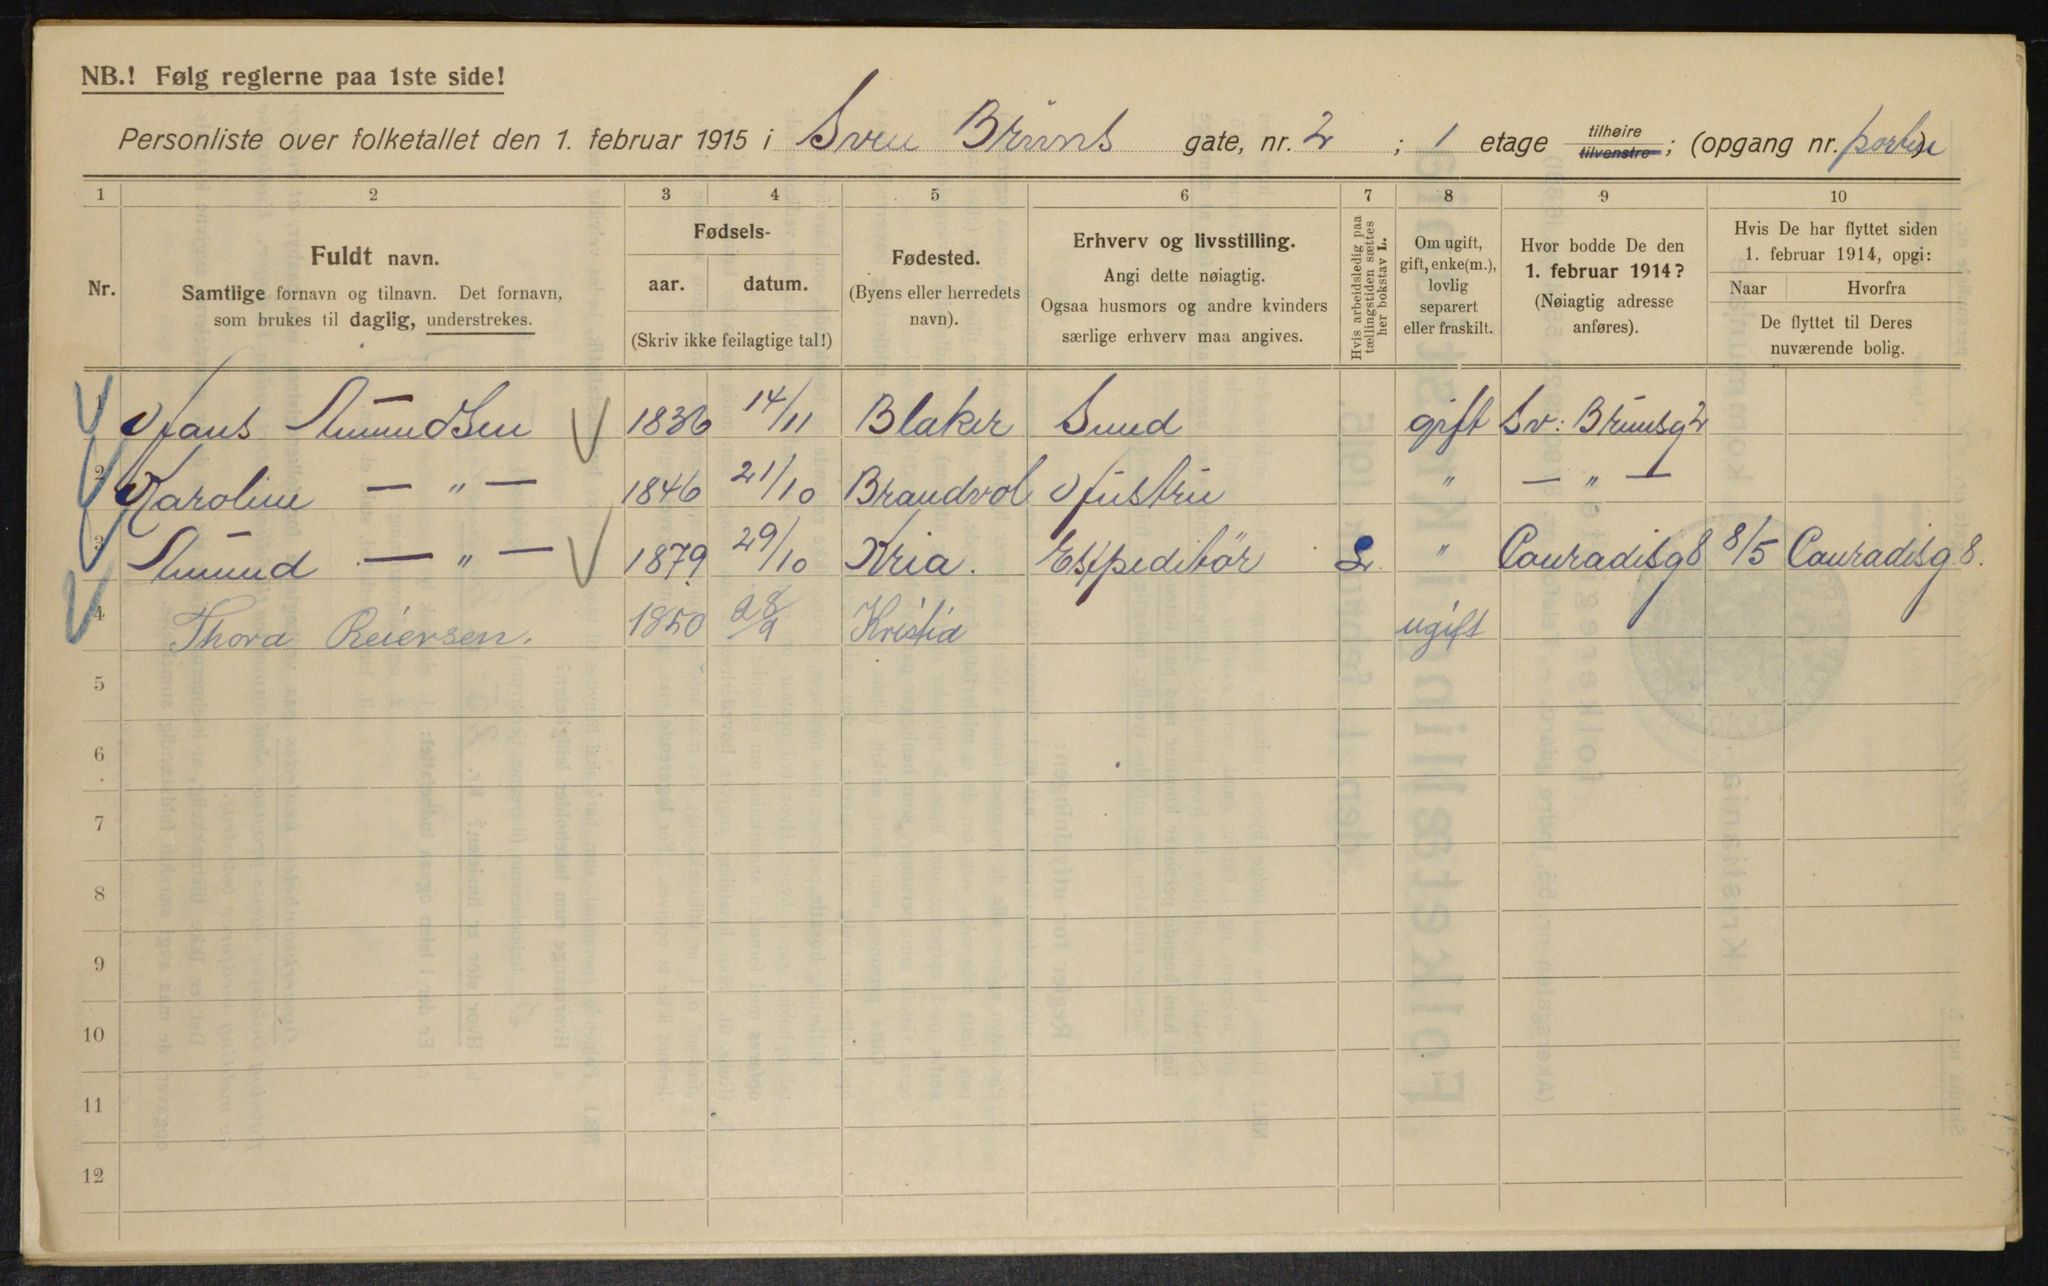 NB.! Følg reglerne paa 1ste side!
Personliste over folketallet den 1. februar 1915 i Sven Bruns gate, nr. 2 ; 1 etage tilhøire tilvenstre; (opgang nr. porten)
1 2 3 4 5 6 7 8 9 10
Nr.
Fuldt navn.
Samtlige fornavn og tilnavn. Det fornavn,
som brukes til daglig, understrekes.
Fødsels-
aar. datum.
(Skriv ikke feilagtige tal!)
Fødested.
(Byens eller herredets
navn).
Erhverv og livsstilling.
Angi dette nøiagtig.
Ogsaa husmors og andre kvinders
særlige erhverv maa angives.
Hvis arbeidsledig paa
tællingstiden sættes
her bokstav L.
Om ugift,
gift, enke(m.),
lovlig
separert
eller fraskilt.
Hvor bodde De den
1. februar 1914?
(Nøiagtig adresse
anføres).
Hvis De har flyttet siden
1. februar 1914, opgi:
Naar Hvorfra
De flyttet til Deres
nuværende bolig.
1 Hans Amundsen 1836 14/11 Blaker Smed gift Sv: Brunsg 2
2 Karoline — „ — 1846 21/10 Brandvol Hustru „ — „ —
3 Amund — „ — 1879 29/10 Kria. Ekspeditör L. „ Conradisg 8 8/5 Conradisg 8.
4 Thora Reiersen. 1850 28/9 Kristia ugift
5
6
7
8
9
10
11
12